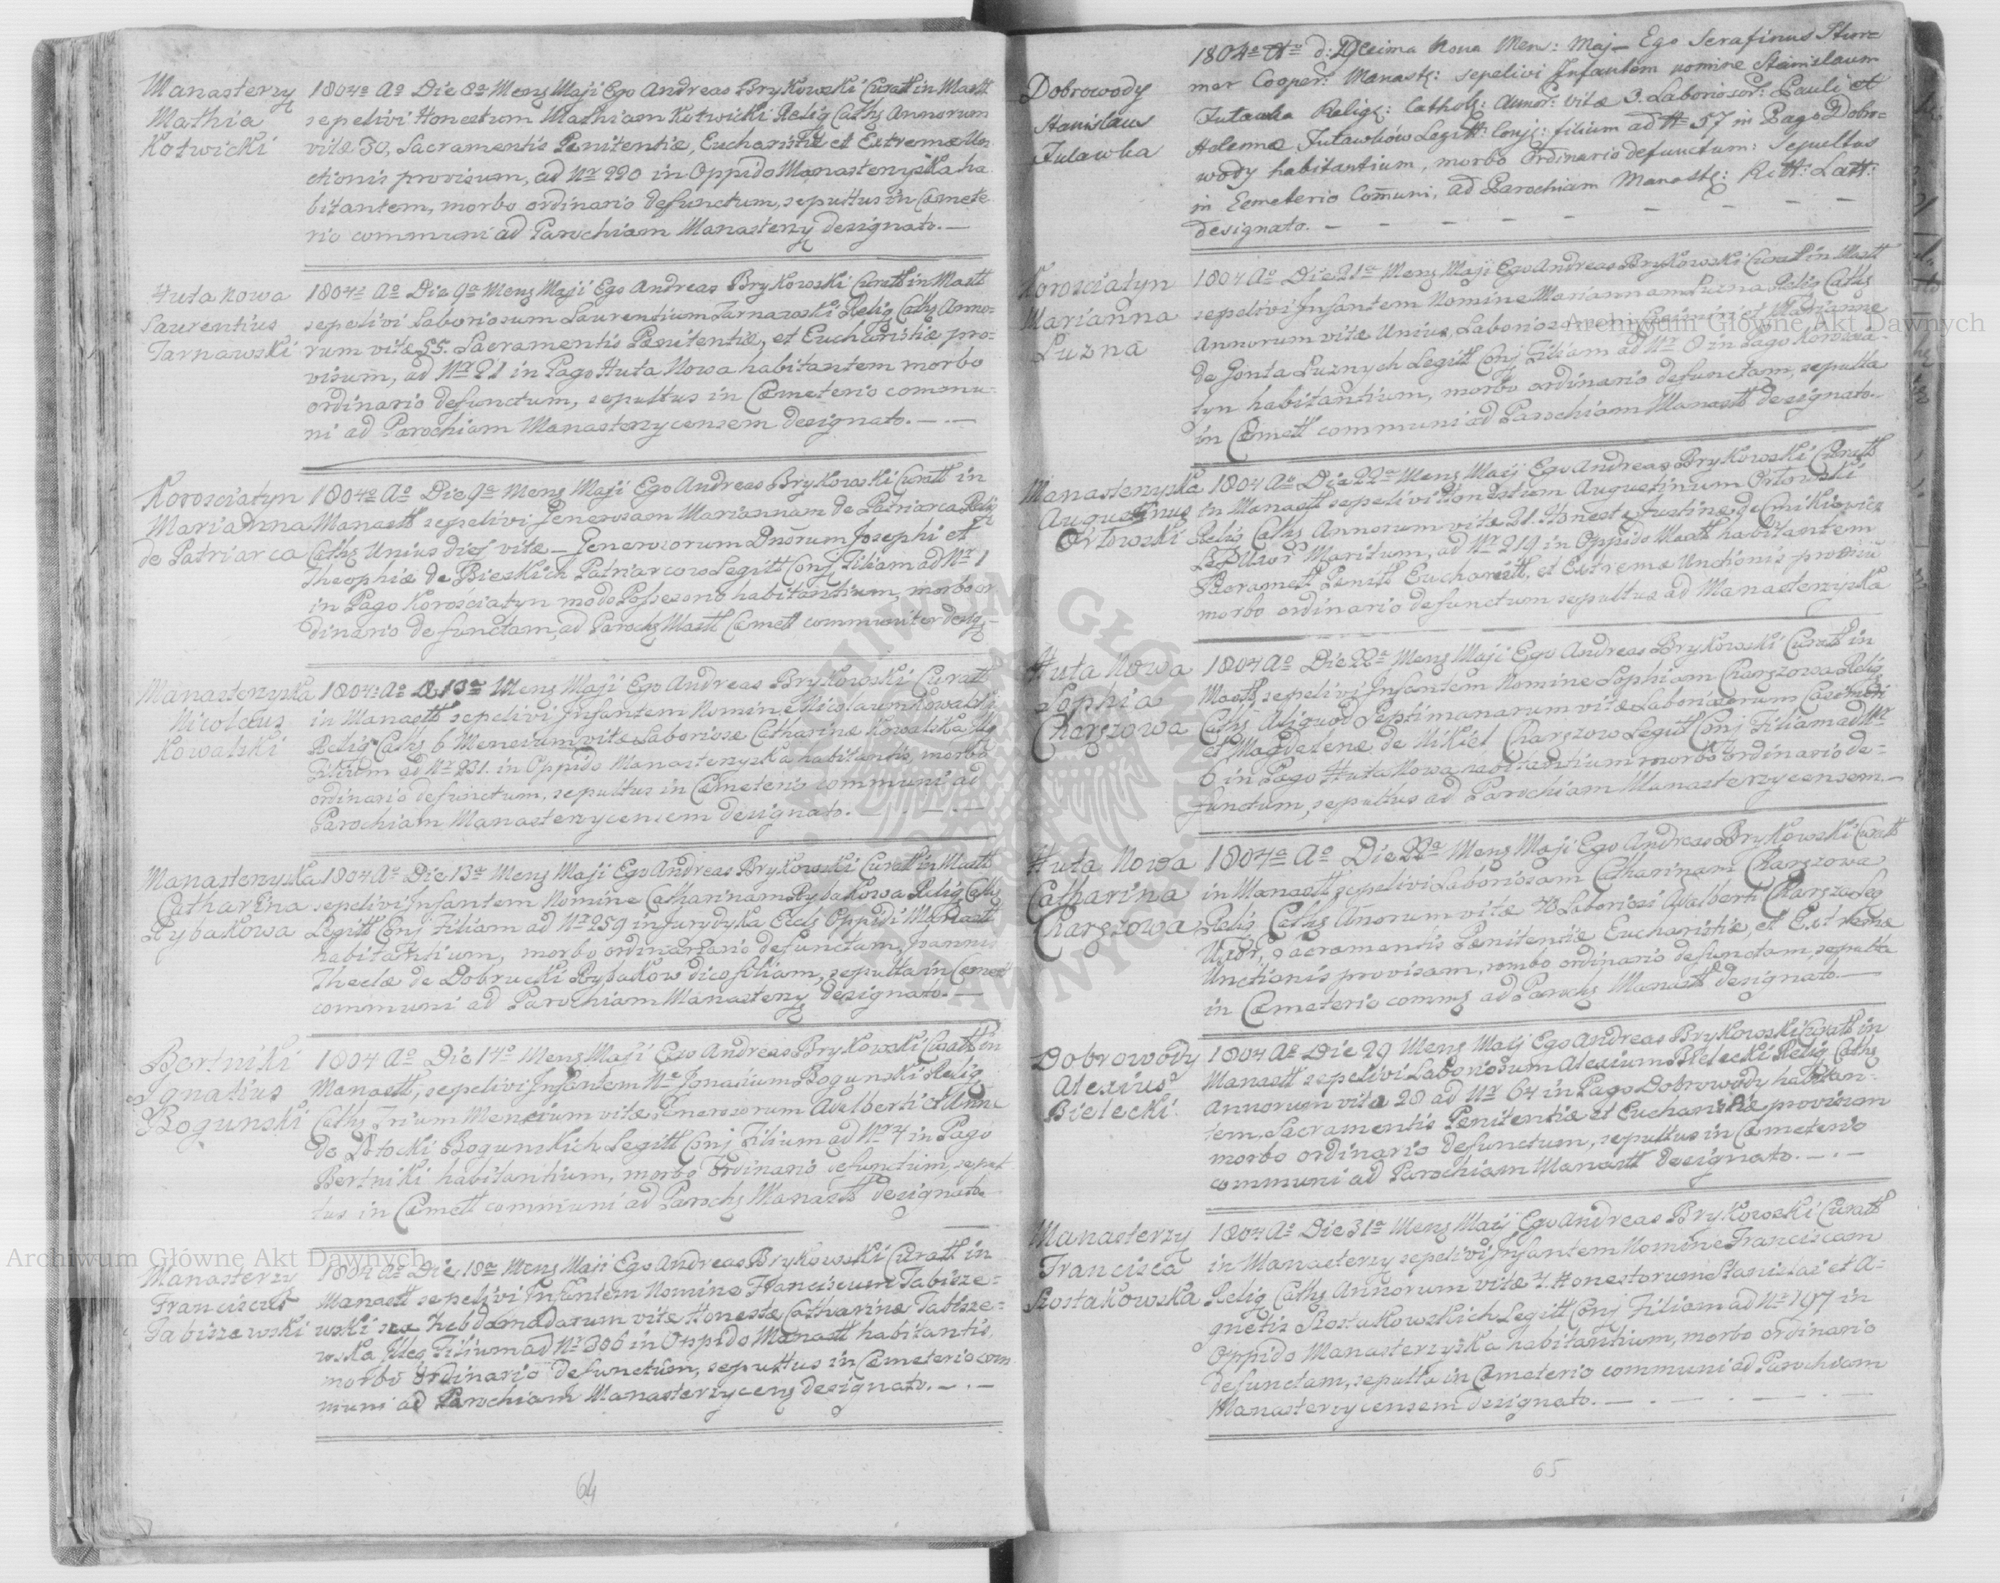 Manasterzy
Mathia
Kotwicki
1804to Ao Die 8a Mens Maji Ego Andreas Brykowski Curatt in Mastt
sepelivi Honestum Mathiam Kotwicki Relig Caths Annorum
vitæ 30, Sacramentis Penitentiæ, Eucharistiæ et Extremæ Un-
ctionis provisum, ad Nr 220 in Oppido Manasterzyska ha
bitantem, morbo ordinario defunctum, sepultus in Cæmete
rio communi ad Parochiam Manasterzy designato. —
Huta Nowa
Laurentius
Tarnawski
1804to Ao Die 9a Mens Maji Ego Andreas Brykowski Curatt in Mastt
sepelivi Laboriosum Laurentium Tarnawski Relig Caths Anno-
rum vitæ 55. Sacramentis Penitentiæ, et Eucharistiæ pro-
visum, ad Nr 21 in Pago Huta Nowa habitantem morbo
ordinario defunctum, sepultus in Cæmeterio commu-
ni ad Parochiam Manasterzycensem designato. — . —
Korosciatyn
Marianna
de Patriarca
1804to Ao Die 9a Mens Maji Ego Andreas Brykowski Curatt in
Manastt sepelivi Generosam Mariannam de Patriarca Relig
Caths Unius diei vitæ — Generosorum Dnorum Josephi et
Theophiæ de Bieskich Patriarcow Legitt Conj Filiam ad Nr 1
in Pago Korościatyn modo Possessono habitantium, morbo or
dinario defunctam, ad Parochs Mastt Cæmett communiter desig-
Manasterzyska
Nicolaus
Kowalski
1804to Ao 13a Mens Maji Ego Andreas Brykowski Curatt
in Manastt sepelivi Infantem Nomine Nicolaum Kowalski
Relig Caths 6 Mensium vitæ Laboriosæ Catharinæ Kowalska Illeg
Filium ad Nr 231. in Oppido Manasterzyska habitantis, morbo
ordinario defunctum, sepultus in Cæmeterio communi ad
Parochiam Manasterzycensem designato. — . — . —
Manasterzyska
Catharina
Rybakowa
1804 Ao Die 13a Mens Maji Ego Andreas Brykowski Curatt in Mastt
sepelivi Infantem Nomine Catharinam Rybakowa Relig Caths
Legitt Conj Filiam ad Nr 259 in Jurydyka Eccls Oppidi Manastt
habitantium, morbo ordinario defunctam, Joannis
Theclæ de Dobrucki Rybakow dico filiam, sepulta in Cæmett
communi ad Parochiam Manasterzy designato. —
Bertniki
Ignatius
Bogunski
1804 Ao Die 14o Mens Maji Ego Andreas Brykowski Curatt in
Manastt, sepelivi Infantem Ne Ignatium Bogunski Relig
Caths Trium Mensium vitæ, Generosorum Adalberti et Annæ
de Bogunskich Legitt Conj Filium ad Nr 4 in Pago
Bertniki habitantium, morbo ordinario defunctum, sepul-
tus in Cæmett communi ad Parochs Manastt designato
Manasterzy
Franciscus
Tabiszewski
1804 Ao Die 18a Mens Maji Ego Andreas Brykowski Curatt in
Manastt sepelivi Infantem Nomine Franciscum Tabisze-
wski sex hebdomadarum vitæ Honestæ Catharinæ Tabisze-
wska Illeg Filium ad Nr 306 in Oppido Manastt habitantis,
morbo ordinario defunctum, sepultus in Cæmeterio com
muni ad Parochiam Manasterzycens designato. — . —
64
Dobrowody
Stanislaus
Tutawka
1804to Ao d: Decima Nona Mens: Maj — Ego Serafinus Stur-
mer Cooper: Manasts: sepelivi Infantem nomine Stanislaum
Tutawka Religs: Catholg: Annor: vitæ 3. Laboriosor: Pauli et
Helenæ Tutawków Legitt: Conjs: filium ad N 57 in Pago Dobro-
wody habitantium, morbo ordinario defunctum: Sepultus
in Cemeterio Comuni, ad Parochiam Manasts: Ritt: Latt:
designato. — — — — — — — —
Korosciatyn
Marianna
Luzna
1804 Ao Die 21a Mens Maji Ego Andreas Brykowski Curatt in Mastt
sepelivi Infantem Nomine Mariannam Luzna Relig Caths
Annorum vitæ Unius, Laboriosorum et Mariannæ
de Gonta Luznych Legitt Conj Filiam ad Nr 8 in Pago Korościa-
tyn habitantium, morbo ordinario defunctam, sepulta
in Cæmett communi ad Parochiam Manastt designato.
Manasterzyska
Augustinus
Ortowski
1804 Ao Die 22a Mens Maji Ego Andreas Brykowski Curatt
in Manastt sepelivi Honestum Augustinum Ortowski
Relig Caths Annorum vitæ 21. Honestæ Justinæ de Cmikiewicz
Maritum, ad Nr 219 in Oppido Mastt habitantem
Sacramett Penitt Eucharistt, et Extremæ Unctionis provisũ
morbo ordinario defunctum sepultus ad Manasterzyska
Huta Nowa
Sophia
Charszowa
1804 Ao Die 22a Mens Maji Ego Andreas Brykowski Curatt in
Mastt, sepelivi Infantem Nomine Sophiam Charszowa Relig
Caths Aliquod Septimanarum vitæ Laboriosorum Casimiri
et Magdalenæ de Nikiel Charszow Legitt Conj Filiam ad Nr
6 in Pago Huta Nowa habitantium morbo ordinario de-
functum, sepultus ad Parochiam Manasterzycensem —
Huta Nowa
Catharina
Charszowa
1804to Ao Die 22a Mens Maji Ego Andreas Brykowski Curatt
in Manastt sepelivi Laboriosam Catharinam Charszowa
Relig Caths Anorum vitæ 70 Laboriosi Adalberti Charsza Leg
Uxor, Sacramentis Penitentiæ Eucharistiæ, et Extremæ
Unctionis provisam, mombo ordinario defunctam, sepulta
in Cæmeterio comms ad Parochs Manastt designato. —
Dobrowody
Alexius
Bielecki
1804 Ao Die 29 Mens Maij Ego Andreas Brykowski Curatt in
Manastt sepelivi Laboriosum Alexium Bielecki Relig Caths
Annorum vita 28 ad Nr 64 in Pago Dobrowody habitan-
tem, Sacramentis Penitentiæ et Eucharistiæ provisum
morbo ordinario defunctum, sepultus in Cæmeterio
communi ad Parochiam Manastt designato. — . —
Manasterzy
Francisca
Szostakowska
1804 Ao Die 31a Mens Maij Ego Andreas Brykowski Curatt
in Manasterzy sepelivi Infantem Nomine Franciscam
Relig Caths Annorum vitæ 7. Honestorum Stanislai et A-
gnetis Szostakowskich Legitt Conj Filiam ad Nr 197 in
Oppido Manasterzyska habitantium, morbo ordinario
defunctam, sepulta in Cæmeterio communi ad Parochiam
Manasterzycensem designato. — . — . — . —
65
Archiwum Główne Akt Dawnych
Archiwum Główne Akt Dawnych
ARCHIWUM GŁÓWNE AKT DAWNYCH